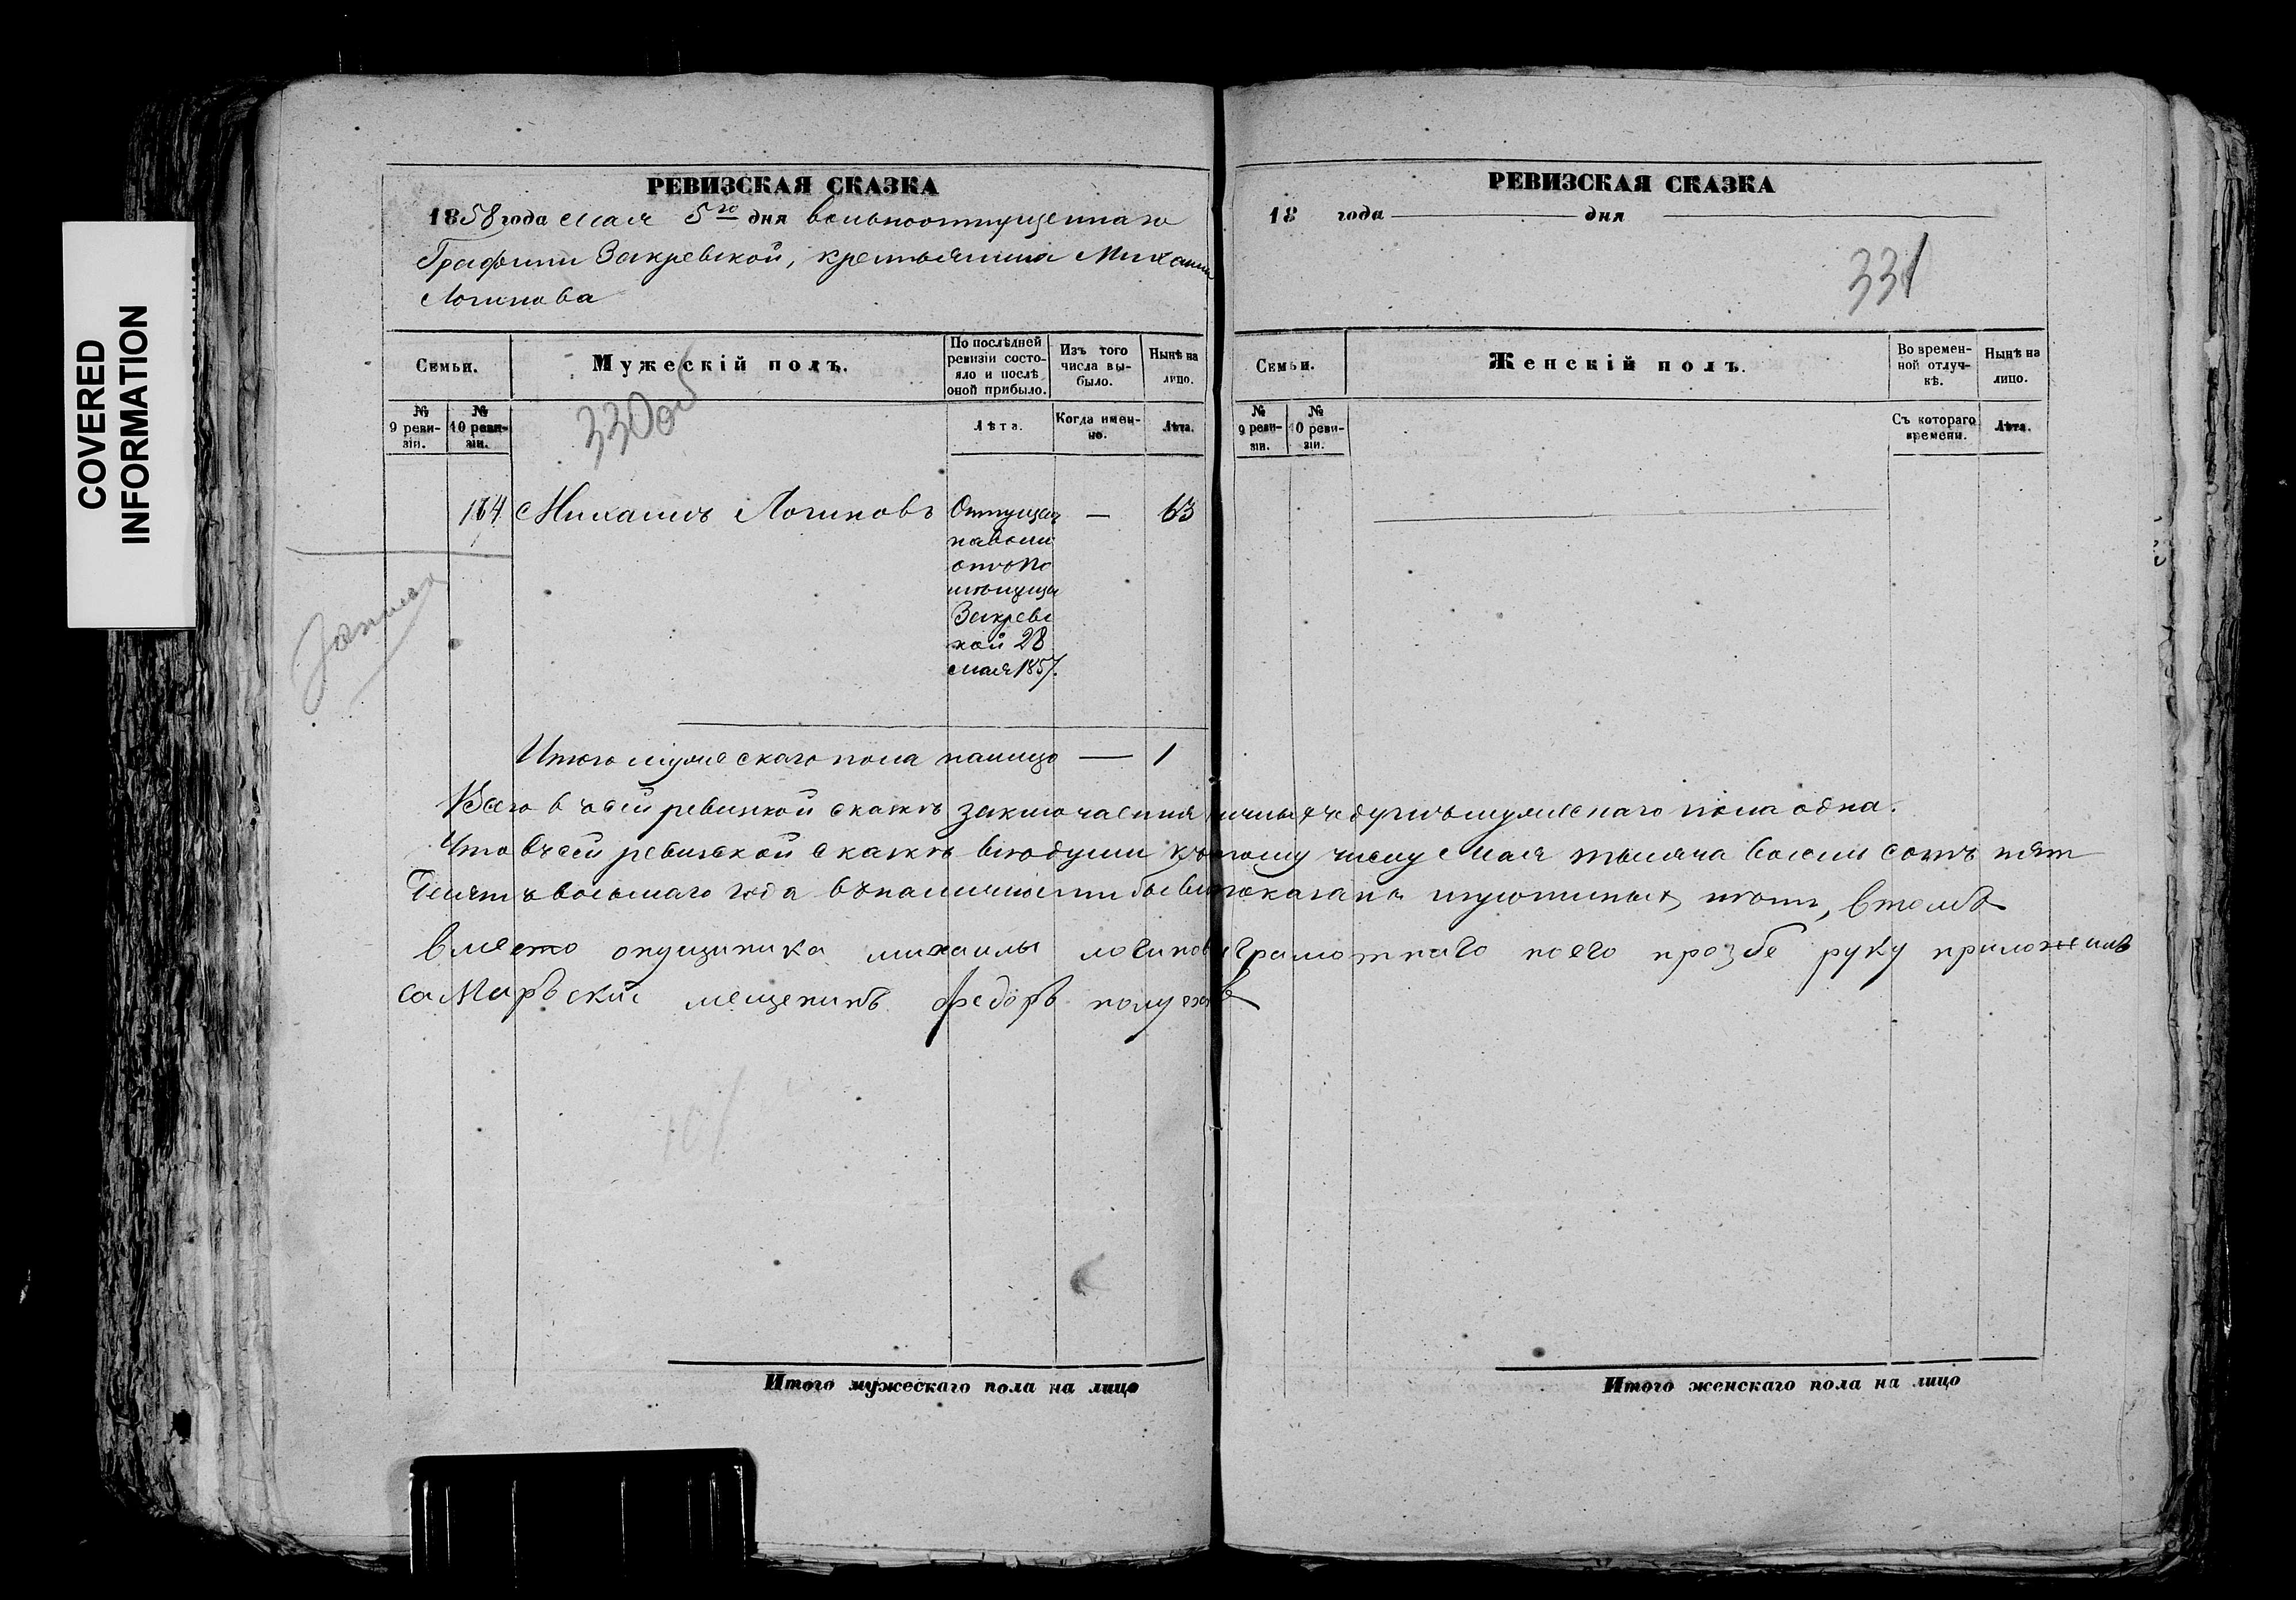 COVERED
INFORMATION
РЕВИЗСКАЯ СКАЗКА
1858 года мая 5го дня вольноотпущеннаго
Графини Закревской, крестьянина Михаила
Логинова
Семьи.
Мужескій полъ.
По послѣдней
ревизіи состо-
яло и послѣ
оной прибыло.
Изъ того
числа вы-
было.
Нынѣ на
лицо.
№
9 реви-
зіи.
№
10 реви-
зіи.
330об
Лѣта.
Когда имен-
но.
Лѣта.
164 Михаилъ Логиновъ
Отпущен
наволю
отъ По
мѣщицы
Закревс
кой 28
мая 1857.
—
63
Итого мужескаго пола налицо — 1
Всего в сей ревизкой сказкѣ заключается личныхъ душъ мужескаго пола одна.
Что всей ревизской сказкѣ всѣ души къ числу Мая тысяча восемь сотъ пят
десятъ восьмаго года вналичности бывши показаны и пропущенныхъ нѣтъ, втомъ
вместо опущиника михаилы логинова грамотнаго поего прозбе руку приложилъ
саМарьскии мещенинъ федоръ
Итого мужескаго пола на лицо
РЕВИЗСКАЯ СКАЗКА
18 года — дня —
331
Семьи.
Женскій полъ.
Во времен-
ной отлуч-
кѣ.
Нынѣ на
лицо.
№
9 реви-
зіи.
№
10 реви-
зіи.
Съ котораго
времени.
Лѣта.
Итого женскаго пола на лицо